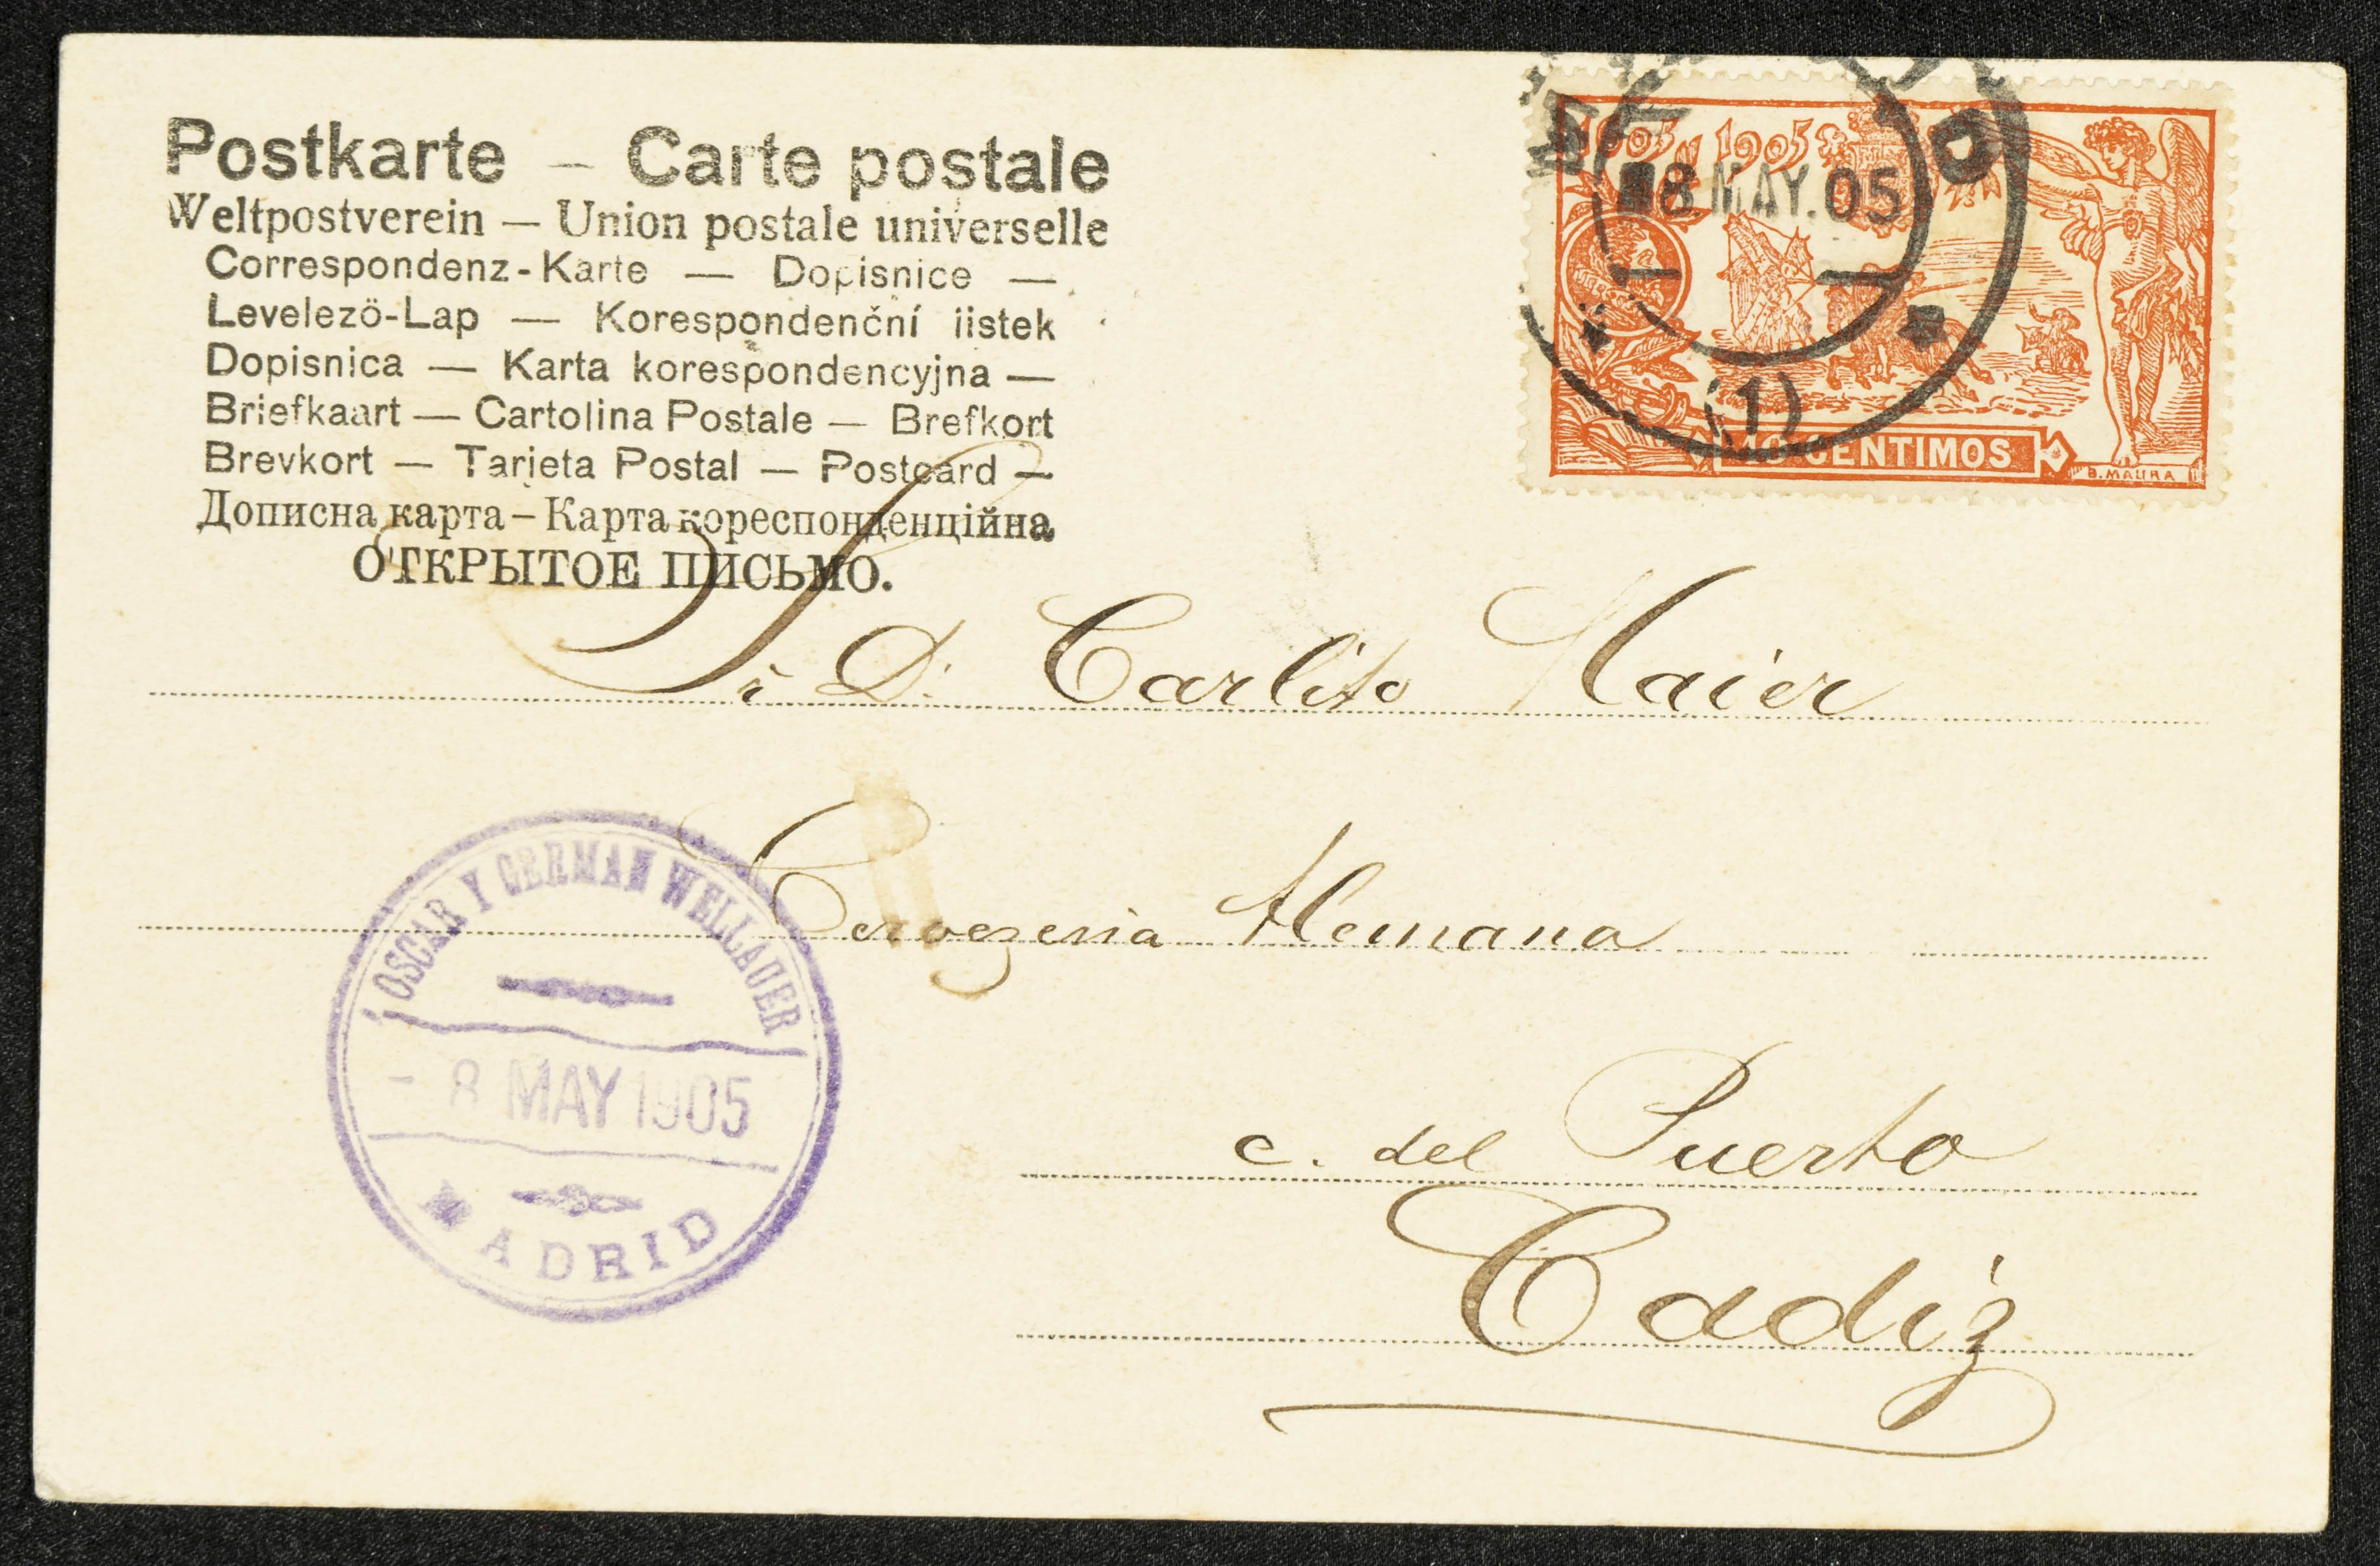 Postkarte – Carte postale
Weltpostverein — Union postale universelle
Correspondenz-Karte — Dopisnice —
Levelező-Lap — Korespondenční listek
Dopisnica — Karta korespondencyjna —
Briefkaart — Cartolina Postale — Brefkort
Brevkort — Tarjeta Postal — Postcard —
Дописна карта – Карта кореспонденційна
ОТКРЫТОЕ ПИСЬМО.
1605 1905
8 MAY. 05
(1)
10 CENTIMOS
B. MAURA
Sr D. Carlito Maier
Cervezeria Alemana
c. del Puerto
Cadiz
OSCAR Y GERMAN WELLAUER
- 8 MAY 1905
MADRID